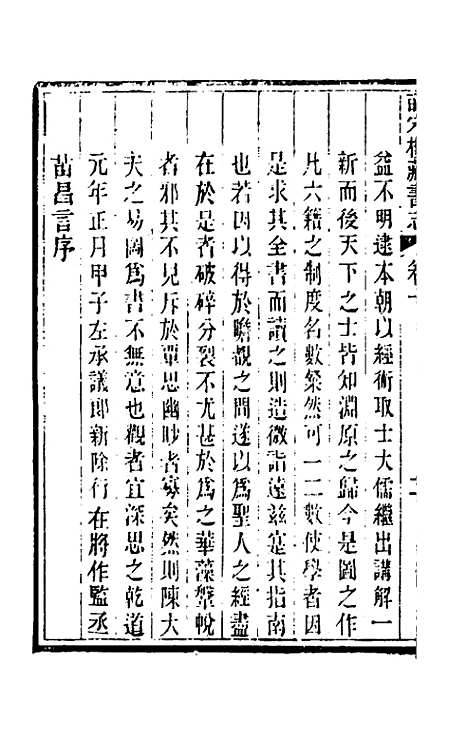 皕宋樓藏書志　卷十
益不明逮本朝以經術取士大儒繼出講解一
新而後天下之士皆知淵原之歸今是圖之作
凡六籍之制度名數粲然可一二數使學者因
是求其全書而讀之則造微詣遠茲寔其指南
也若因以得於瞻覩之間遂以爲聖人之經盡
在於是者破碎分裂不尤甚於爲之華藻鞶帨
者邪其不見斥於覃思幽眇者寡矣然則陳大
夫之易圖爲書不無意也觀者宜深思之乾道
元年正月甲子左承議郎新除行在將作監丞
苗昌言序